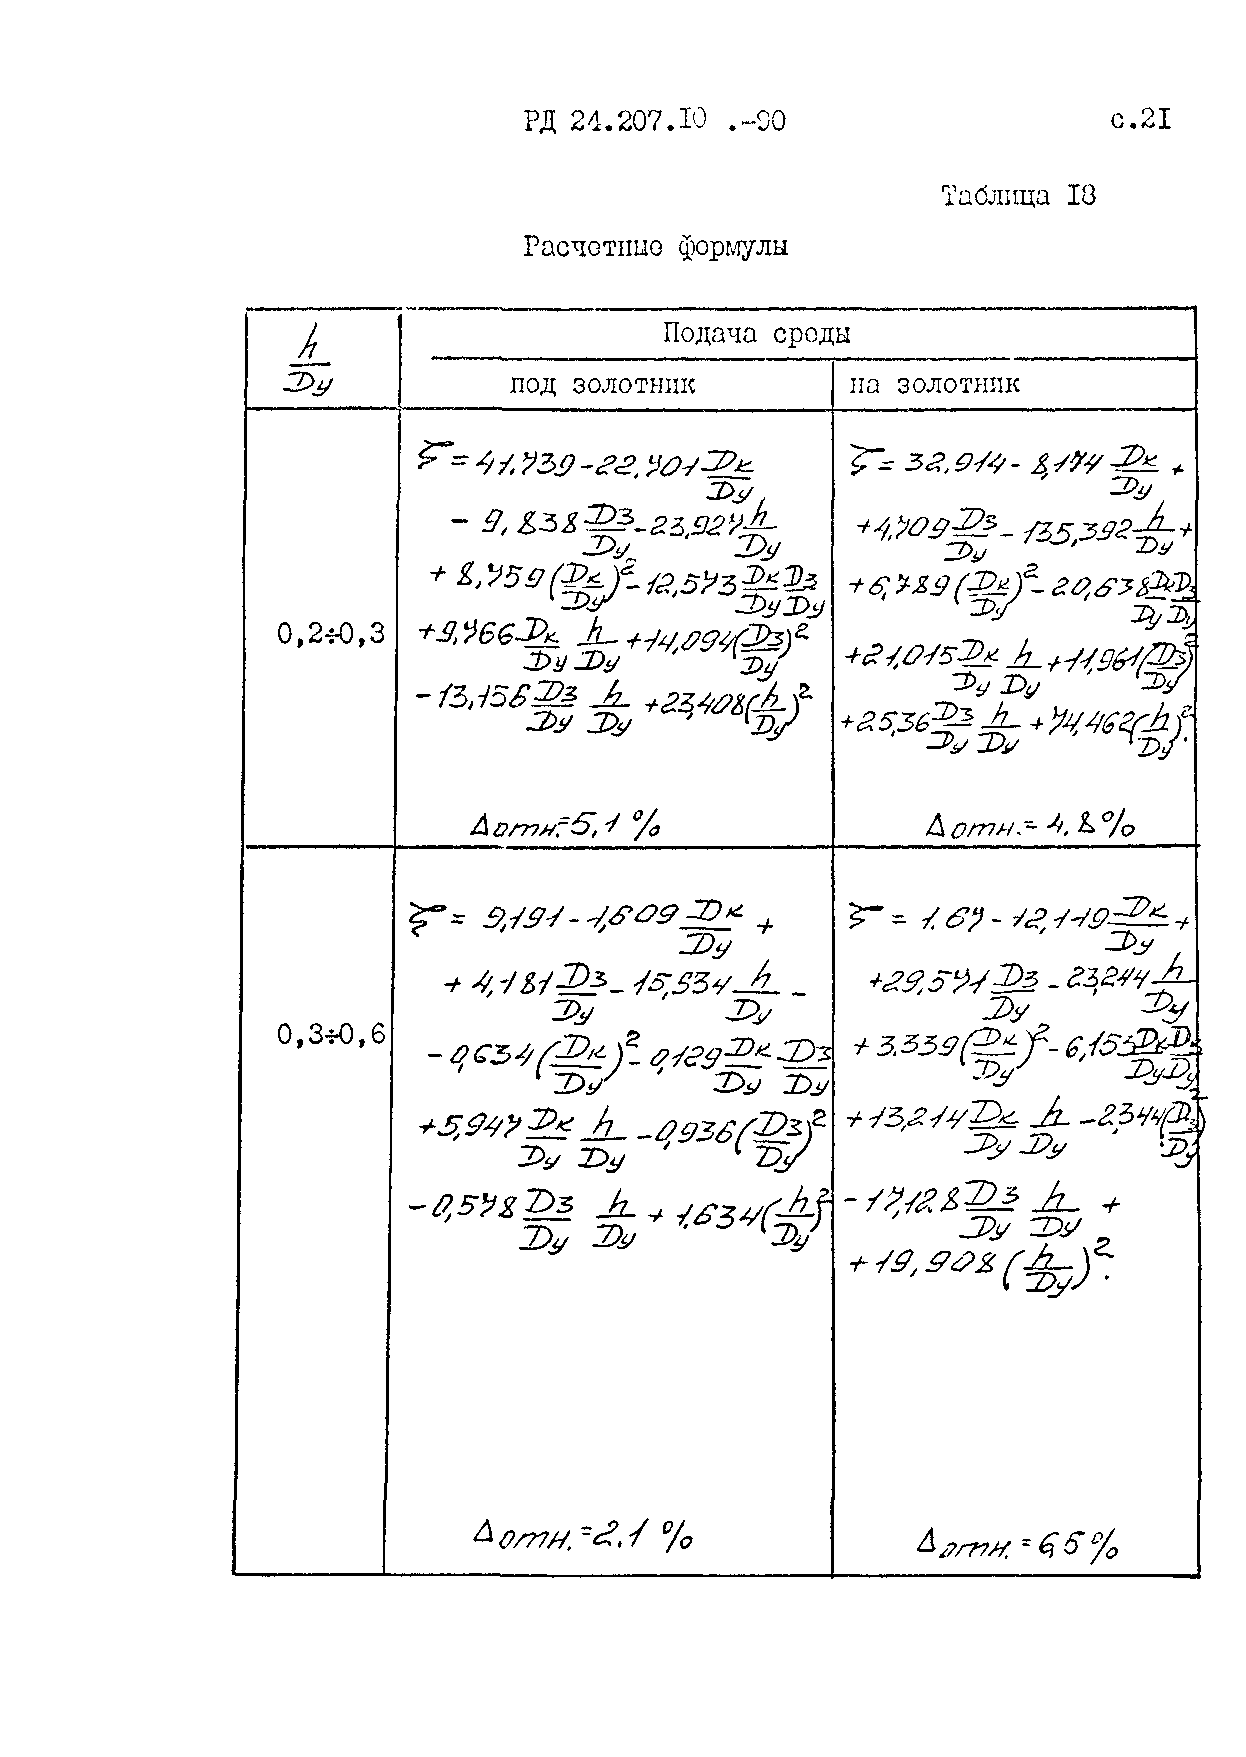 РД 24.207.10 .-90 с.21
Таблица 18
Расчетные формулы
h/Dу
Подача среды
под золотник
на золотник
0,2÷0,3
ζ = 41,739 - 22,701 Dк/Dу
- 9,838 Dз/Dу - 23,927 h/Dу
+ 8,759 (Dк/Dу)² - 12,573 Dк/Dу Dз/Dу
+ 9,766 Dк/Dу h/Dу + 14,094 (Dз/Dу)²
- 13,156 Dз/Dу h/Dу + 23,408 (h/Dу)²
Δотн. = 5,1 %
ζ = 32,914 - 8,174 Dк/Dу +
+ 4,709 Dз/Dу - 135,392 h/Dу +
+ 6,789 (Dк/Dу)² - 20,638 Dк/Dу Dз/Dу
+ 21,015 Dк/Dу h/Dу + 11,961 (Dз/Dу)²
+ 25,36 Dз/Dу h/Dу + 74,462 (h/Dу)².
Δотн. = 4,8 %
0,3÷0,6
ζ = 9,191 - 1,609 Dк/Dу +
+ 4,181 Dз/Dу - 15,534 h/Dу -
- 0,634 (Dк/Dу)² - 0,129 Dк/Dу Dз/Dу
+ 5,947 Dк/Dу h/Dу - 0,936 (Dз/Dу)²
- 0,578 Dз/Dу h/Dу + 1,634 (h/Dу)²
Δотн. = 2,1 %
ζ = 1.67 - 12,119 Dк/Dу +
+ 29,571 Dз/Dу - 23,244 h/Dу
+ 3.339 (Dк/Dу)² - 6,153 Dк/Dу Dз/Dу
+ 13,214 Dк/Dу h/Dу - 2,344 (Dз/Dу)²
- 17,128 Dз/Dу h/Dу +
+ 19,908 (h/Dу)².
Δотн. = 6,5 %